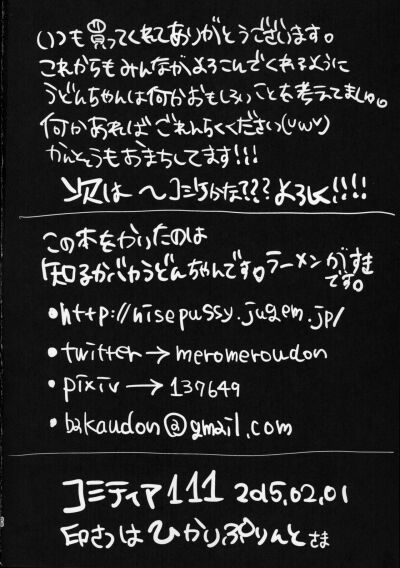 いつも買ってくれてありがとうございます。
これからもみんながよろこんでくれるように
うどんちゃんは何かおもしろいことを考えてましゅ。
何かあればごれんらくください(∪ω∪)
かんそうもおまちしてます!!!
次は〜コミケかな???よろしく!!!!
この本をかいたのは
知るかバカうどんちゃんです。ラーメンがすき
です。
•http://nisepussy.jugem.jp/
•twitter→meromeroudon
•pixiv→137649
•bakaudon@gmail.com
コミティア111 2015.02.01
印さつはひかりぷりんとさま